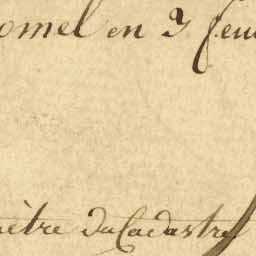 omel en 3 feu
ètre du Cadastre